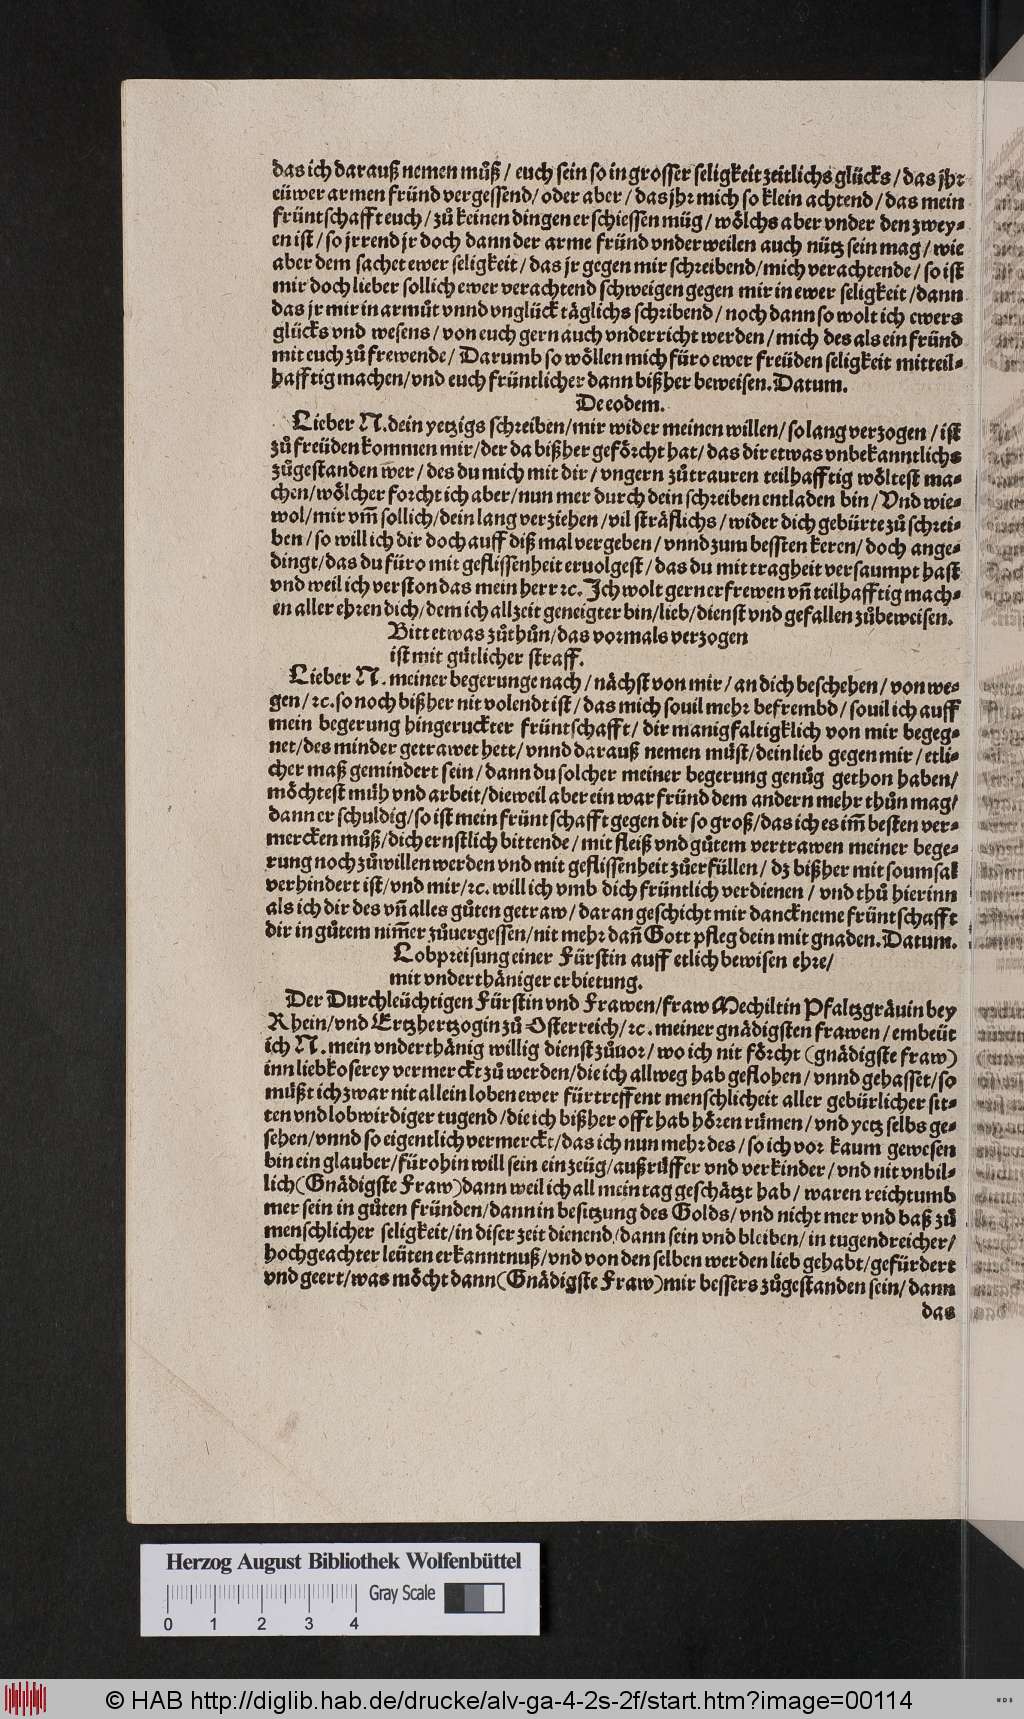 das ich darauß nemen můß / euch sein so in grosser seligkeit zeitlichs glücks / das jhr
eüwer armen fründ vergessend / oder aber / das jhr mich so klein achtend / das mein
früntschafft euch / zů keinen dingen erschiessen müg / wölchs aber vnder den zwey-
en ist / so jrrend jr doch dann der arme fründ vnderweilen auch nütz sein mag / wie
aber dem sachet ewer seligkeit / das jr gegen mir schreibend / mich verachtende / so ist
mir doch lieber sollich ewer verachtend schweigen gegen mir in ewer seligkeit / dann
das jr mir in armůt vnnd vnglück täglichs schribend / noch dann so wolt ich ewers
glücks vnd wesens / von euch gern auch vnderricht werden / mich des als ein fründ
mit euch zů frewende / Darumb so wöllen mich füro ewer freüden seligkeit mitteil-
hafftig machen / vnd euch früntlicher dann bißher beweisen. Datum.
De eodem.
Lieber N. dein yetzigs schreiben / mir wider meinen willen / so lang verzogen / ist
zů freüden kommen mir / der da bißher geförcht hat / das dir etwas vnbekanntlichs
zůgestanden wer / des du mich mit dir / vngern zů trauren teilhafftig wöltest ma-
chen / wölcher forcht ich aber / nun mer durch dein schreiben entladen bin / Vnd wie-
wol / mir vm̃ sollich / dein lang verziehen / vil sträflichs / wider dich gebürte zů schrei-
ben / so will ich dir doch auff diß mal vergeben / vnnd zum bessten keren / doch ange-
dingt / das du füro mit geflissenheit eruolgest / das du mit tragheit versaumpt hast
vnd weil ich verston das mein herr ꝛc. Jch wolt gern erfrewen vn̄ teilhafftig mach-
en aller ehren dich / dem ich allzeit geneigter bin / lieb / dienst vnd gefallen zůbeweisen.
Bitt etwas zůthůn / das vormals verzogen
ist mit gütlicher straff.
Lieber N. meiner begerunge nach / nächst von mir / an dich beschehen / von we-
gen / ꝛc. so noch bißher nit volendt ist / das mich souil mehr befrembd / souil ich auff
mein begerung hingeruckter früntschafft / dir manigfaltigklich von mir begeg-
net / des minder getrawet hett / vnnd darauß nemen müst / dein lieb gegen mir / etli-
cher maß gemindert sein / dann du solcher meiner begerung genůg gethon haben /
möchtest müh vnd arbeit / dieweil aber ein war fründ dem andern mehr thůn mag /
dann er schuldig / so ist mein früntschafft gegen dir so groß / das ich es im̃ besten ver-
mercken můß / dich ernstlich bittende / mit fleiß vnd gůtem vertrawen meiner bege-
rung noch zůwillen werden vnd mit geflissenheit zůerfüllen / dz bißher mit soumsal
verhindert ist / vnd mir / ꝛc. will ich vmb dich früntlich verdienen / vnd thů hierinn
als ich dir des vn̄ alles gůten getraw / daran geschicht mir danckneme früntschafft
dir in gůtem nim̃er zůuergessen / nit mehr dañ Gott pfleg dein mit gnaden. Datum.
Lobpreisung einer Fürstin auff etlich bewisen ehre /
mit vnderthäniger erbietung.
Der Durchleüchtigen Fürstin vnd Frawen / fraw Mechilt in Pfaltzgräuin bey
Rhein / vnd Ertzhertzogin zů Osterreich / ꝛc. meiner gnädigsten frawen / embeüt
ich N. mein vnderthänig willig dienst zůuor / wo ich nit förcht (gnädigste fraw)
inn liebkoserey vermerckt zů werden / die ich allweg hab geflohen / vnnd gehasset / so
müßt ich zwar nit allein loben ewer fürtreffent menschlicheit aller gebürlicher sit-
ten vnd lobwirdiger tugend / die ich bißher offt hab hören rümen / vnd yetz selbs ge-
sehen / vnnd so eigentlich vermerckt / das ich nun mehr des / so ich vor kaum gewesen
bin ein glauber / fürohin will sein ein zeüg / außrüffer vnd verkinder / vnd nit vnbil-
lich (Gnädigste Fraw) dann weil ich all mein tag geschätzt hab / waren reichtumb
mer sein in gůten fründen / dann in besitzung des Golds / vnd nicht mer vnd baß zů
menschlicher seligkeit / in diser zeit dienend / dann sein vnd bleiben / in tugendreicher /
hochgeachter leüten erkanntnuß / vnd von den selben werden lieb gehabt / gefürdert
vnd geert / was möcht dann (Gnädigste Fraw) mir bessers zůgestanden sein / dann
das
Herzog August Bibliothek Wolfenbüttel
Gray Scale
0 1 2 3 4
© HAB http://diglib.hab.de/drucke/alv-ga-4-2s-2f/start.htm?image=00114